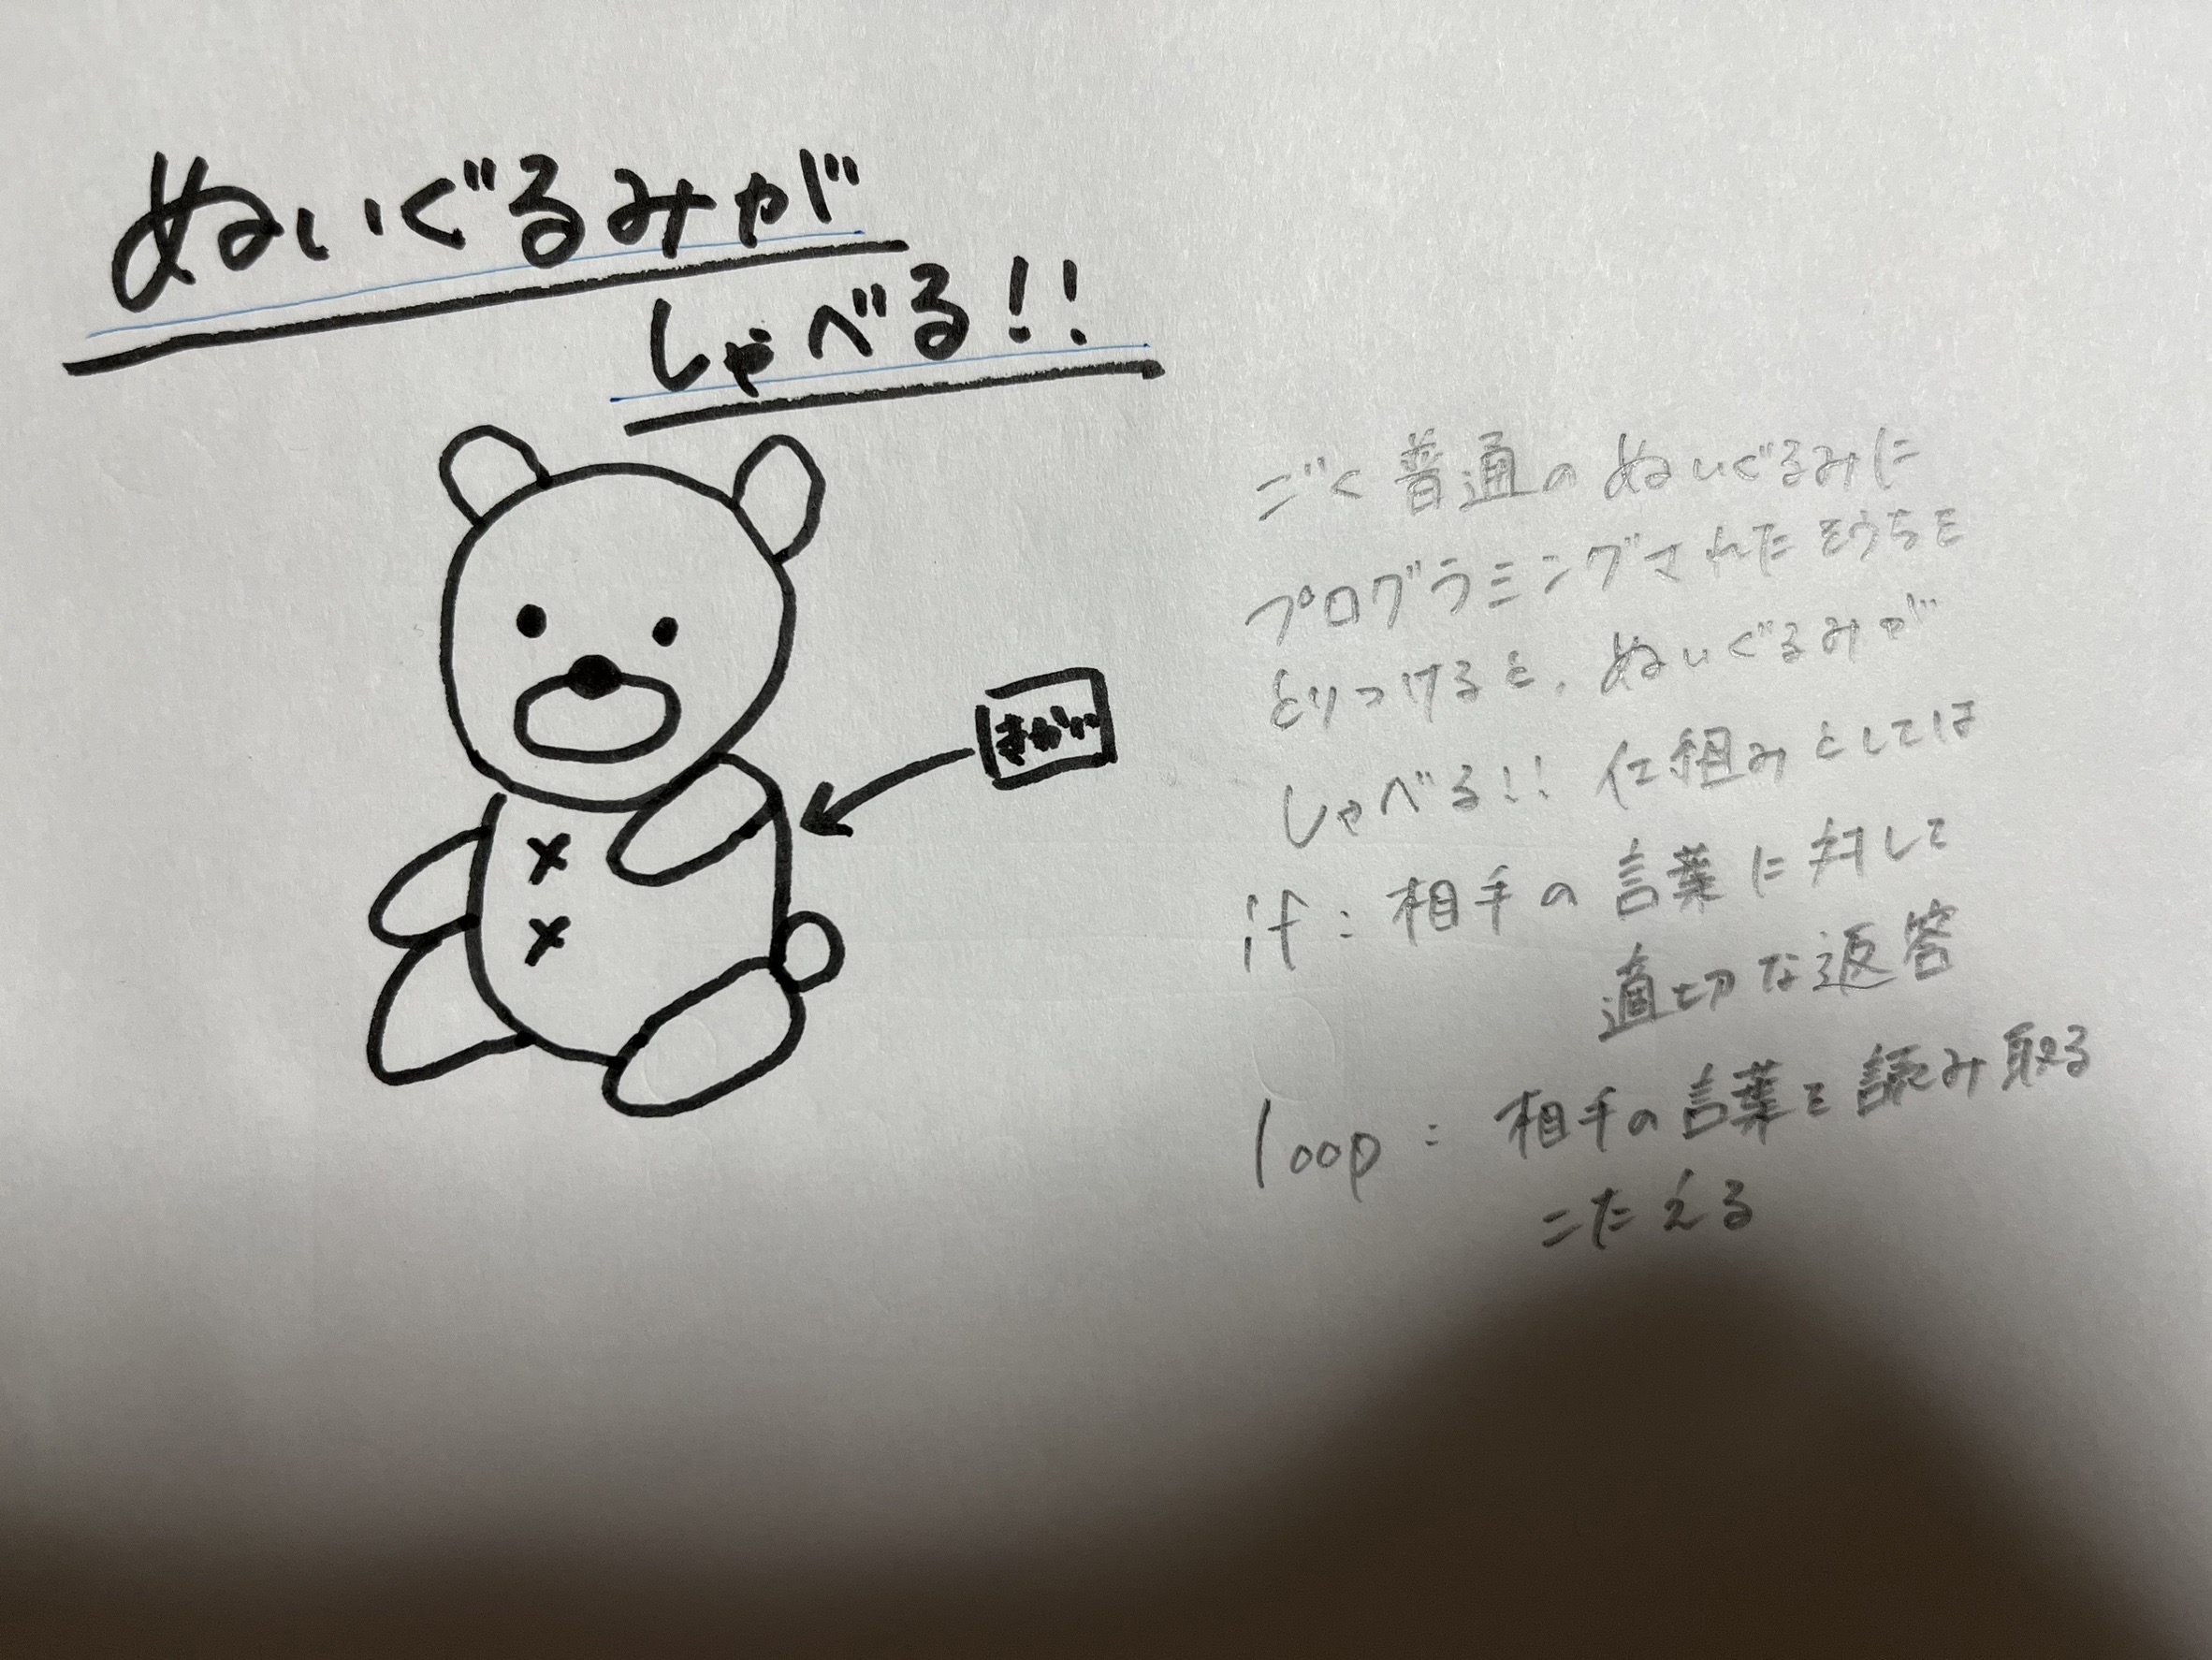 ぬいぐるみが
しゃべる!!
ごく普通のぬいぐるみに
プログラミングされたそうちを
とりつけると、ぬいぐるみが
しゃべる!! 仕組みとしては
if : 相手の言葉に対して
適切な返答
loop : 相手の言葉を読み取る
こたえる